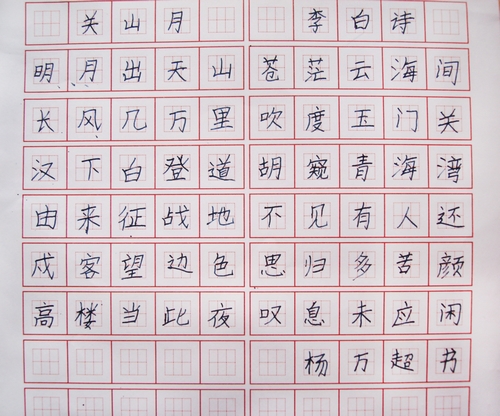 关山月 李白诗
明月出天山 苍茫云海间
长风几万里 吹度玉门关
汉下白登道 胡窥青海湾
由来征战地 不见有人还
戍客望边色 思归多苦颜
高楼当此夜 叹息未应闲
杨万超书